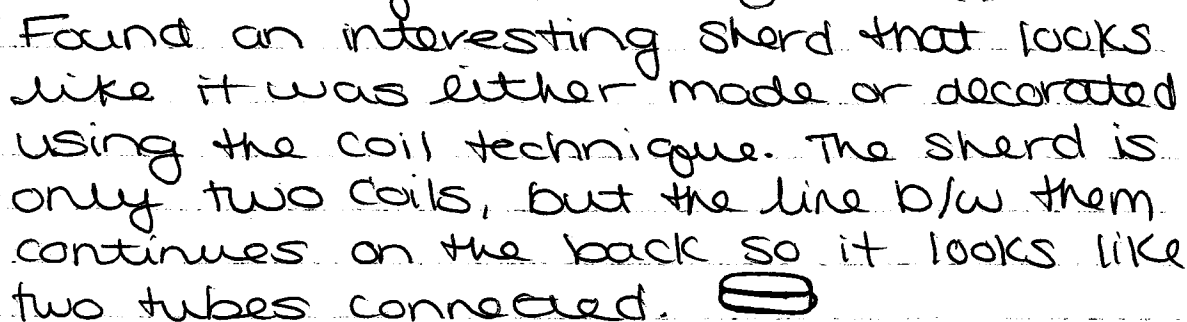 Found an interesting sherd that looks
like it was either made or decorated
using the coil technique. The sherd is
only two coils, but the line b/w them
continues on the back so it looks like
two tubes connected.